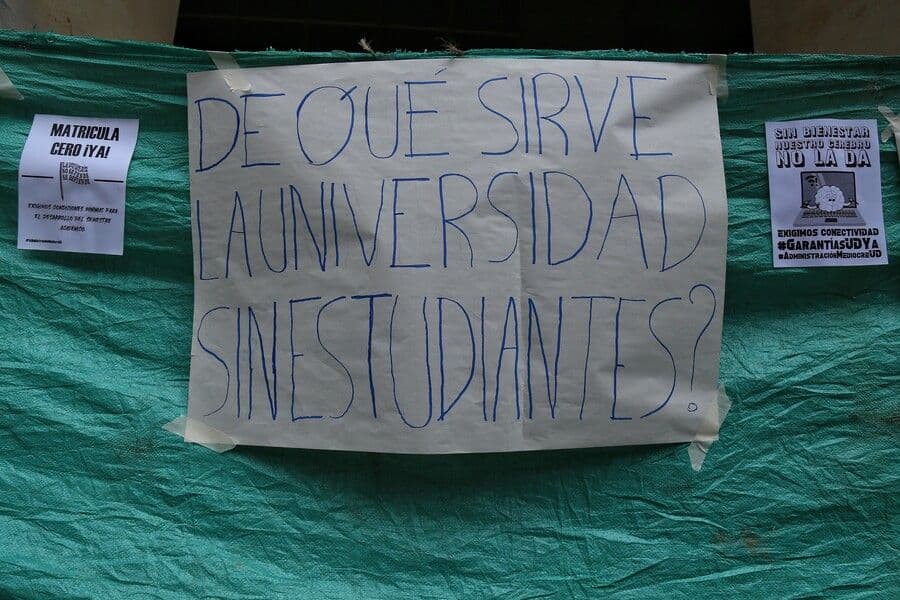 MATRICULA
CERO ¡YA!
EXIGIMOS CONDICIONES MINIMAS PARA
EL DESARROLLO DEL SEMESTRE
ACADÉMICO
DE QUÉ SIRVE
LA UNIVERSIDAD
SIN ESTUDIANTES?
SIN BIENESTAR
NUESTRO CEREBRO
NO LA DA
EXIGIMOS CONECTIVIDAD
#GARANTÍASUDYA
#ADMINISTRACIÓNMEDIOCREUD